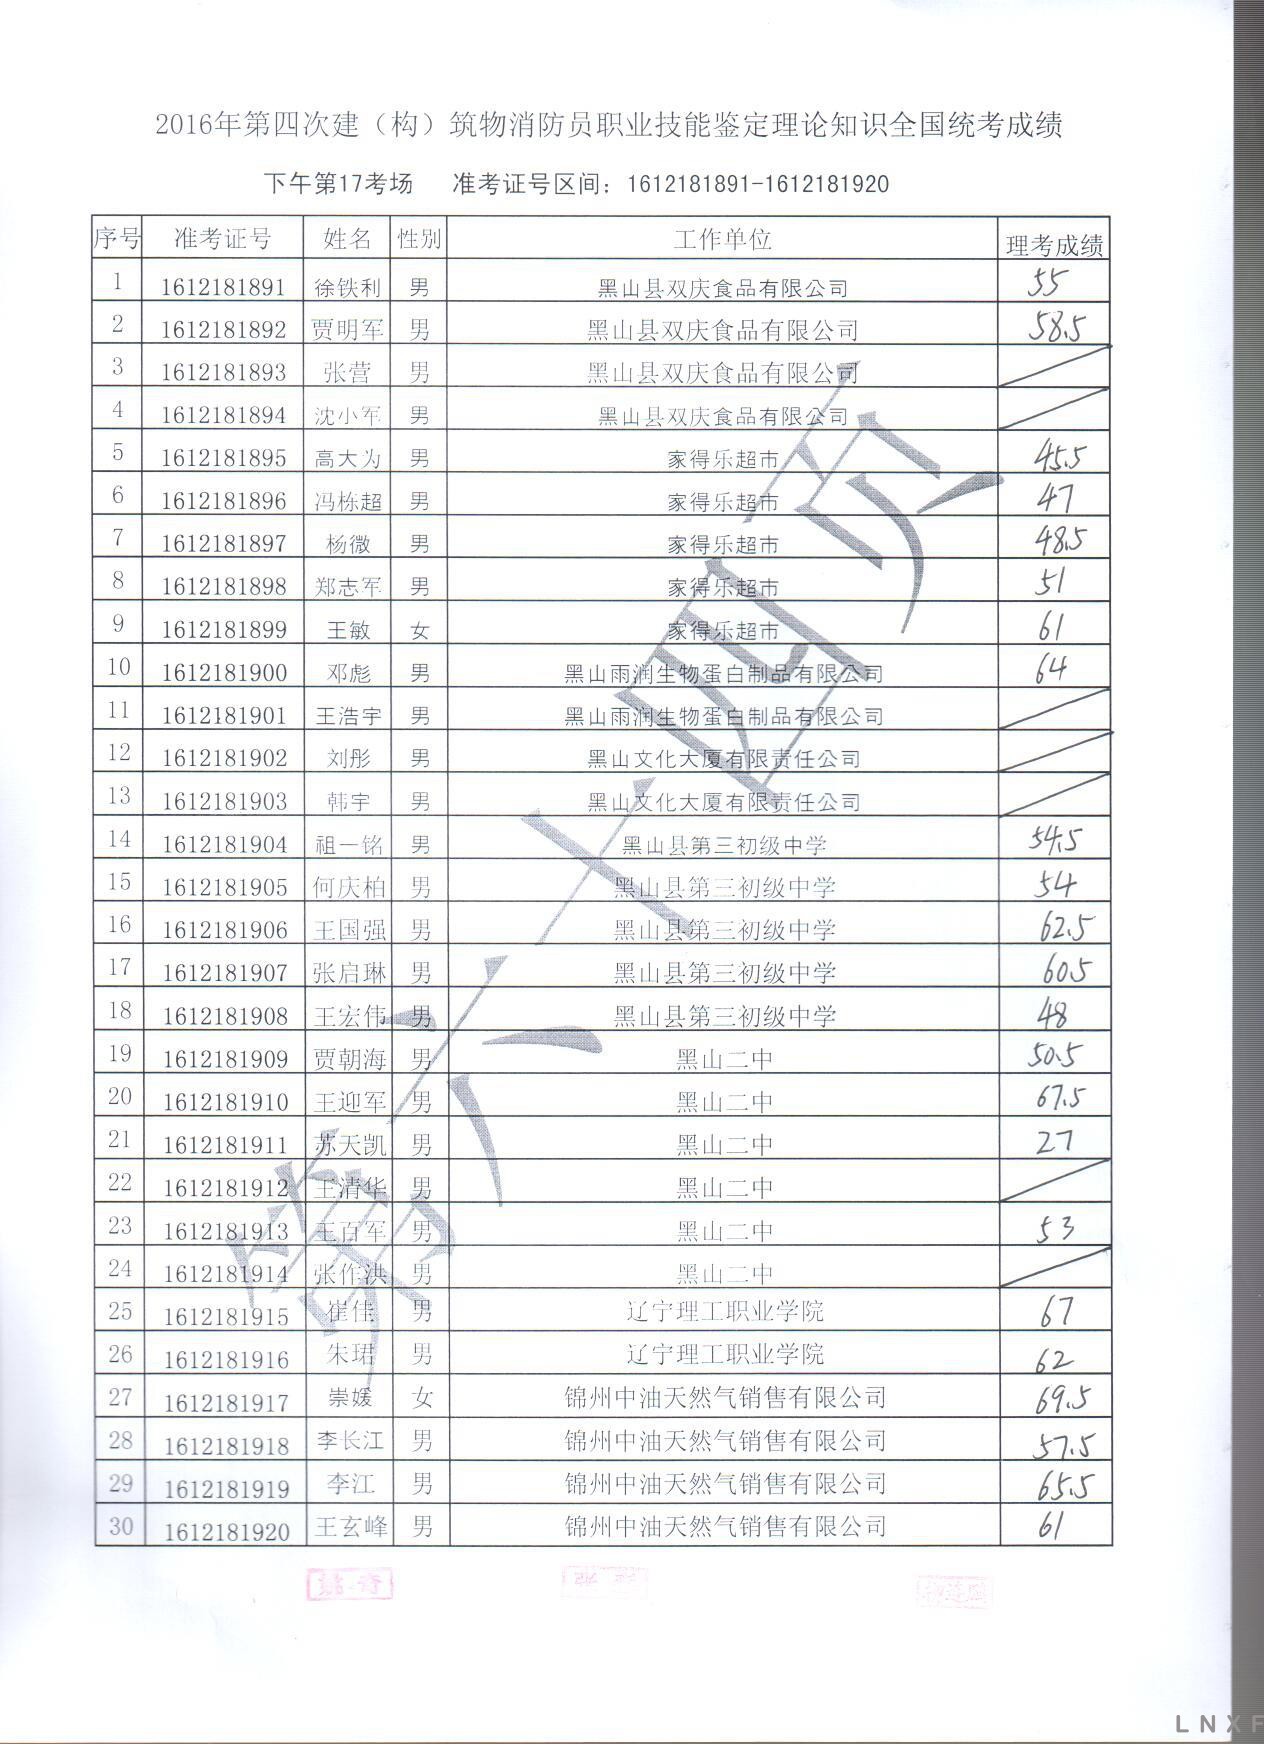 2016年第四次建（构）筑物消防员职业技能鉴定理论知识全国统考成绩
下午第17考场 准考证号区间：1612181891-1612181920
序号 准考证号 姓名 性别 工作单位 理考成绩
1 1612181891 徐铁利 男 黑山县双庆食品有限公司 55
2 1612181892 贾明军 男 黑山县双庆食品有限公司 58.5
3 1612181893 张营 男 黑山县双庆食品有限公司
4 1612181894 沈小军 男 黑山县双庆食品有限公司
5 1612181895 高大为 男 家得乐超市 45.5
6 1612181896 冯栋超 男 家得乐超市 47
7 1612181897 杨微 男 家得乐超市 48.5
8 1612181898 郑志军 男 家得乐超市 51
9 1612181899 王敏 女 家得乐超市 61
10 1612181900 邓彪 男 黑山雨润生物蛋白制品有限公司 64
11 1612181901 王浩宇 男 黑山雨润生物蛋白制品有限公司
12 1612181902 刘彤 男 黑山文化大厦有限责任公司
13 1612181903 韩宇 男 黑山文化大厦有限责任公司
14 1612181904 祖一铭 男 黑山县第三初级中学 54.5
15 1612181905 何庆柏 男 黑山县第三初级中学 54
16 1612181906 王国强 男 黑山县第三初级中学 62.5
17 1612181907 张启琳 男 黑山县第三初级中学 60.5
18 1612181908 王宏伟 男 黑山县第三初级中学 48
19 1612181909 贾朝海 男 黑山二中 50.5
20 1612181910 王迎军 男 黑山二中 67.5
21 1612181911 苏天凯 男 黑山二中 27
22 1612181912 王清华 男 黑山二中
23 1612181913 王百军 男 黑山二中 53
24 1612181914 张作洪 男 黑山二中
25 1612181915 崔佳 男 辽宁理工职业学院 67
26 1612181916 朱珺 男 辽宁理工职业学院 62
27 1612181917 崇媛 女 锦州中油天然气销售有限公司 69.5
28 1612181918 李长江 男 锦州中油天然气销售有限公司 57.5
29 1612181919 李江 男 锦州中油天然气销售有限公司 65.5
30 1612181920 王玄峰 男 锦州中油天然气销售有限公司 61
第六十四页
LNXF